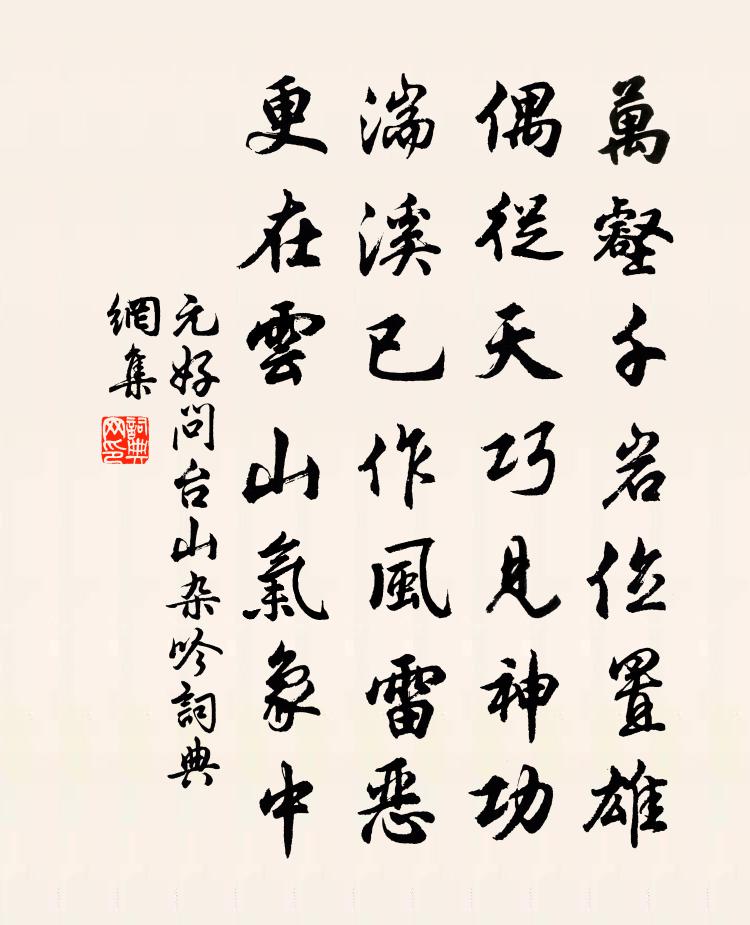 萬壑千岩位置雄
偶從天巧見神功
湍溪已作風雷惡
更在雲山氣象中
元好问台山杂吟詞典
網集
詞典
网印